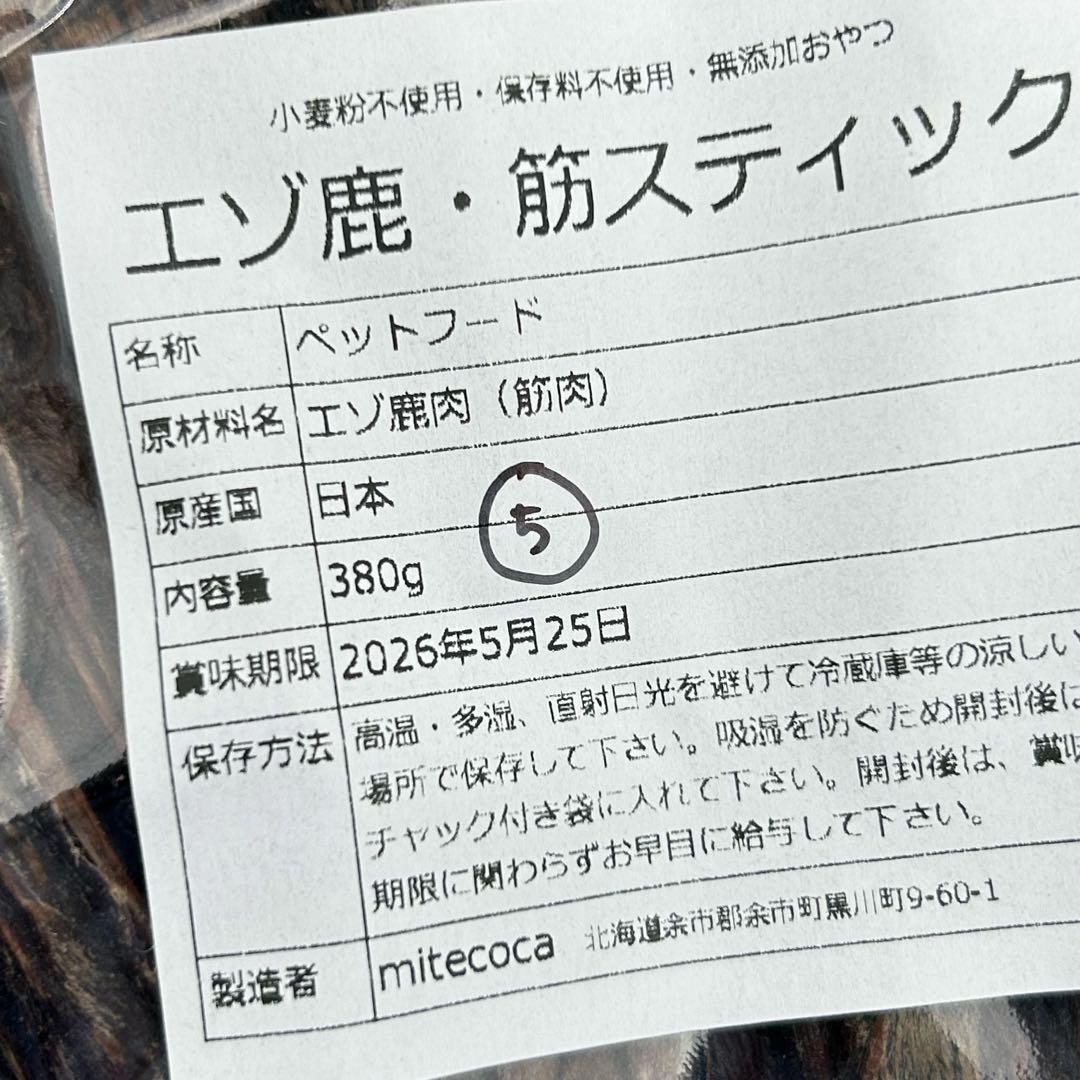 小麦粉不使用・保存料不使用・無添加おやつ
エゾ鹿・筋スティック
名称 ペットフード
原材料名 エゾ鹿肉（筋肉）
原産国 日本
5
内容量 380g
賞味期限 2026年5月25日
保存方法 高温・多湿、直射日光を避けて冷蔵庫等の涼しい
場所で保存して下さい。吸湿を防ぐため開封後は
チャック付き袋に入れて下さい。開封後は、賞味
期限に関わらずお早目に給与して下さい。
製造者 mitecoca 北海道余市郡余市町黒川町9-60-1